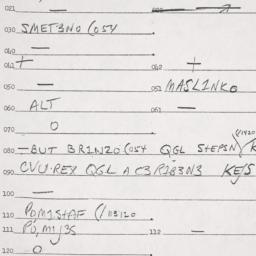 021 —
030 SMET3NO (054
040 —
042 + 062 +
050 — 051 MASL1NKO
060 ALT 061 —
070 0
080 —BUT BR1NZO (054 QGL STEPSN
090 CVU·REX QGL A C3R183N3 KEJS
100 —
110 POM1STAF (/113120
111 PO, M1J3S 112 —
120 0